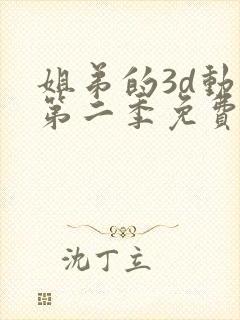 姐弟的3d動
第二季免費
沈丁立